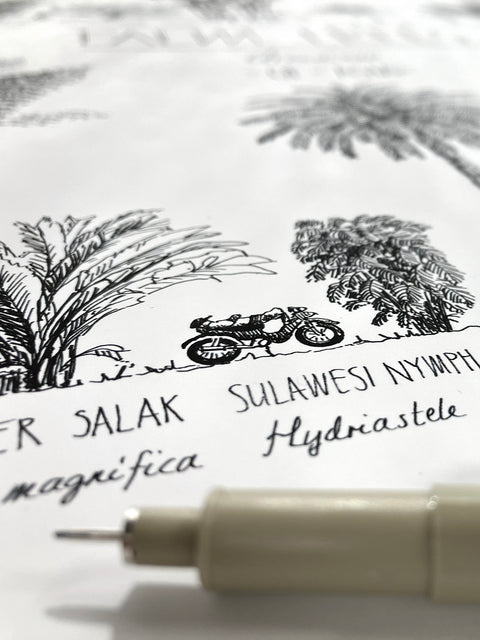 ER SALAK
magnifica
SULAWESI NYMPH
Hydriastele